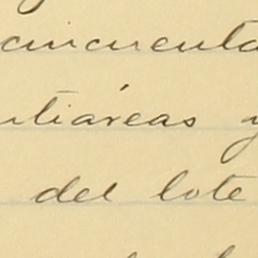 cincuenta
ntiáreas y
del lote